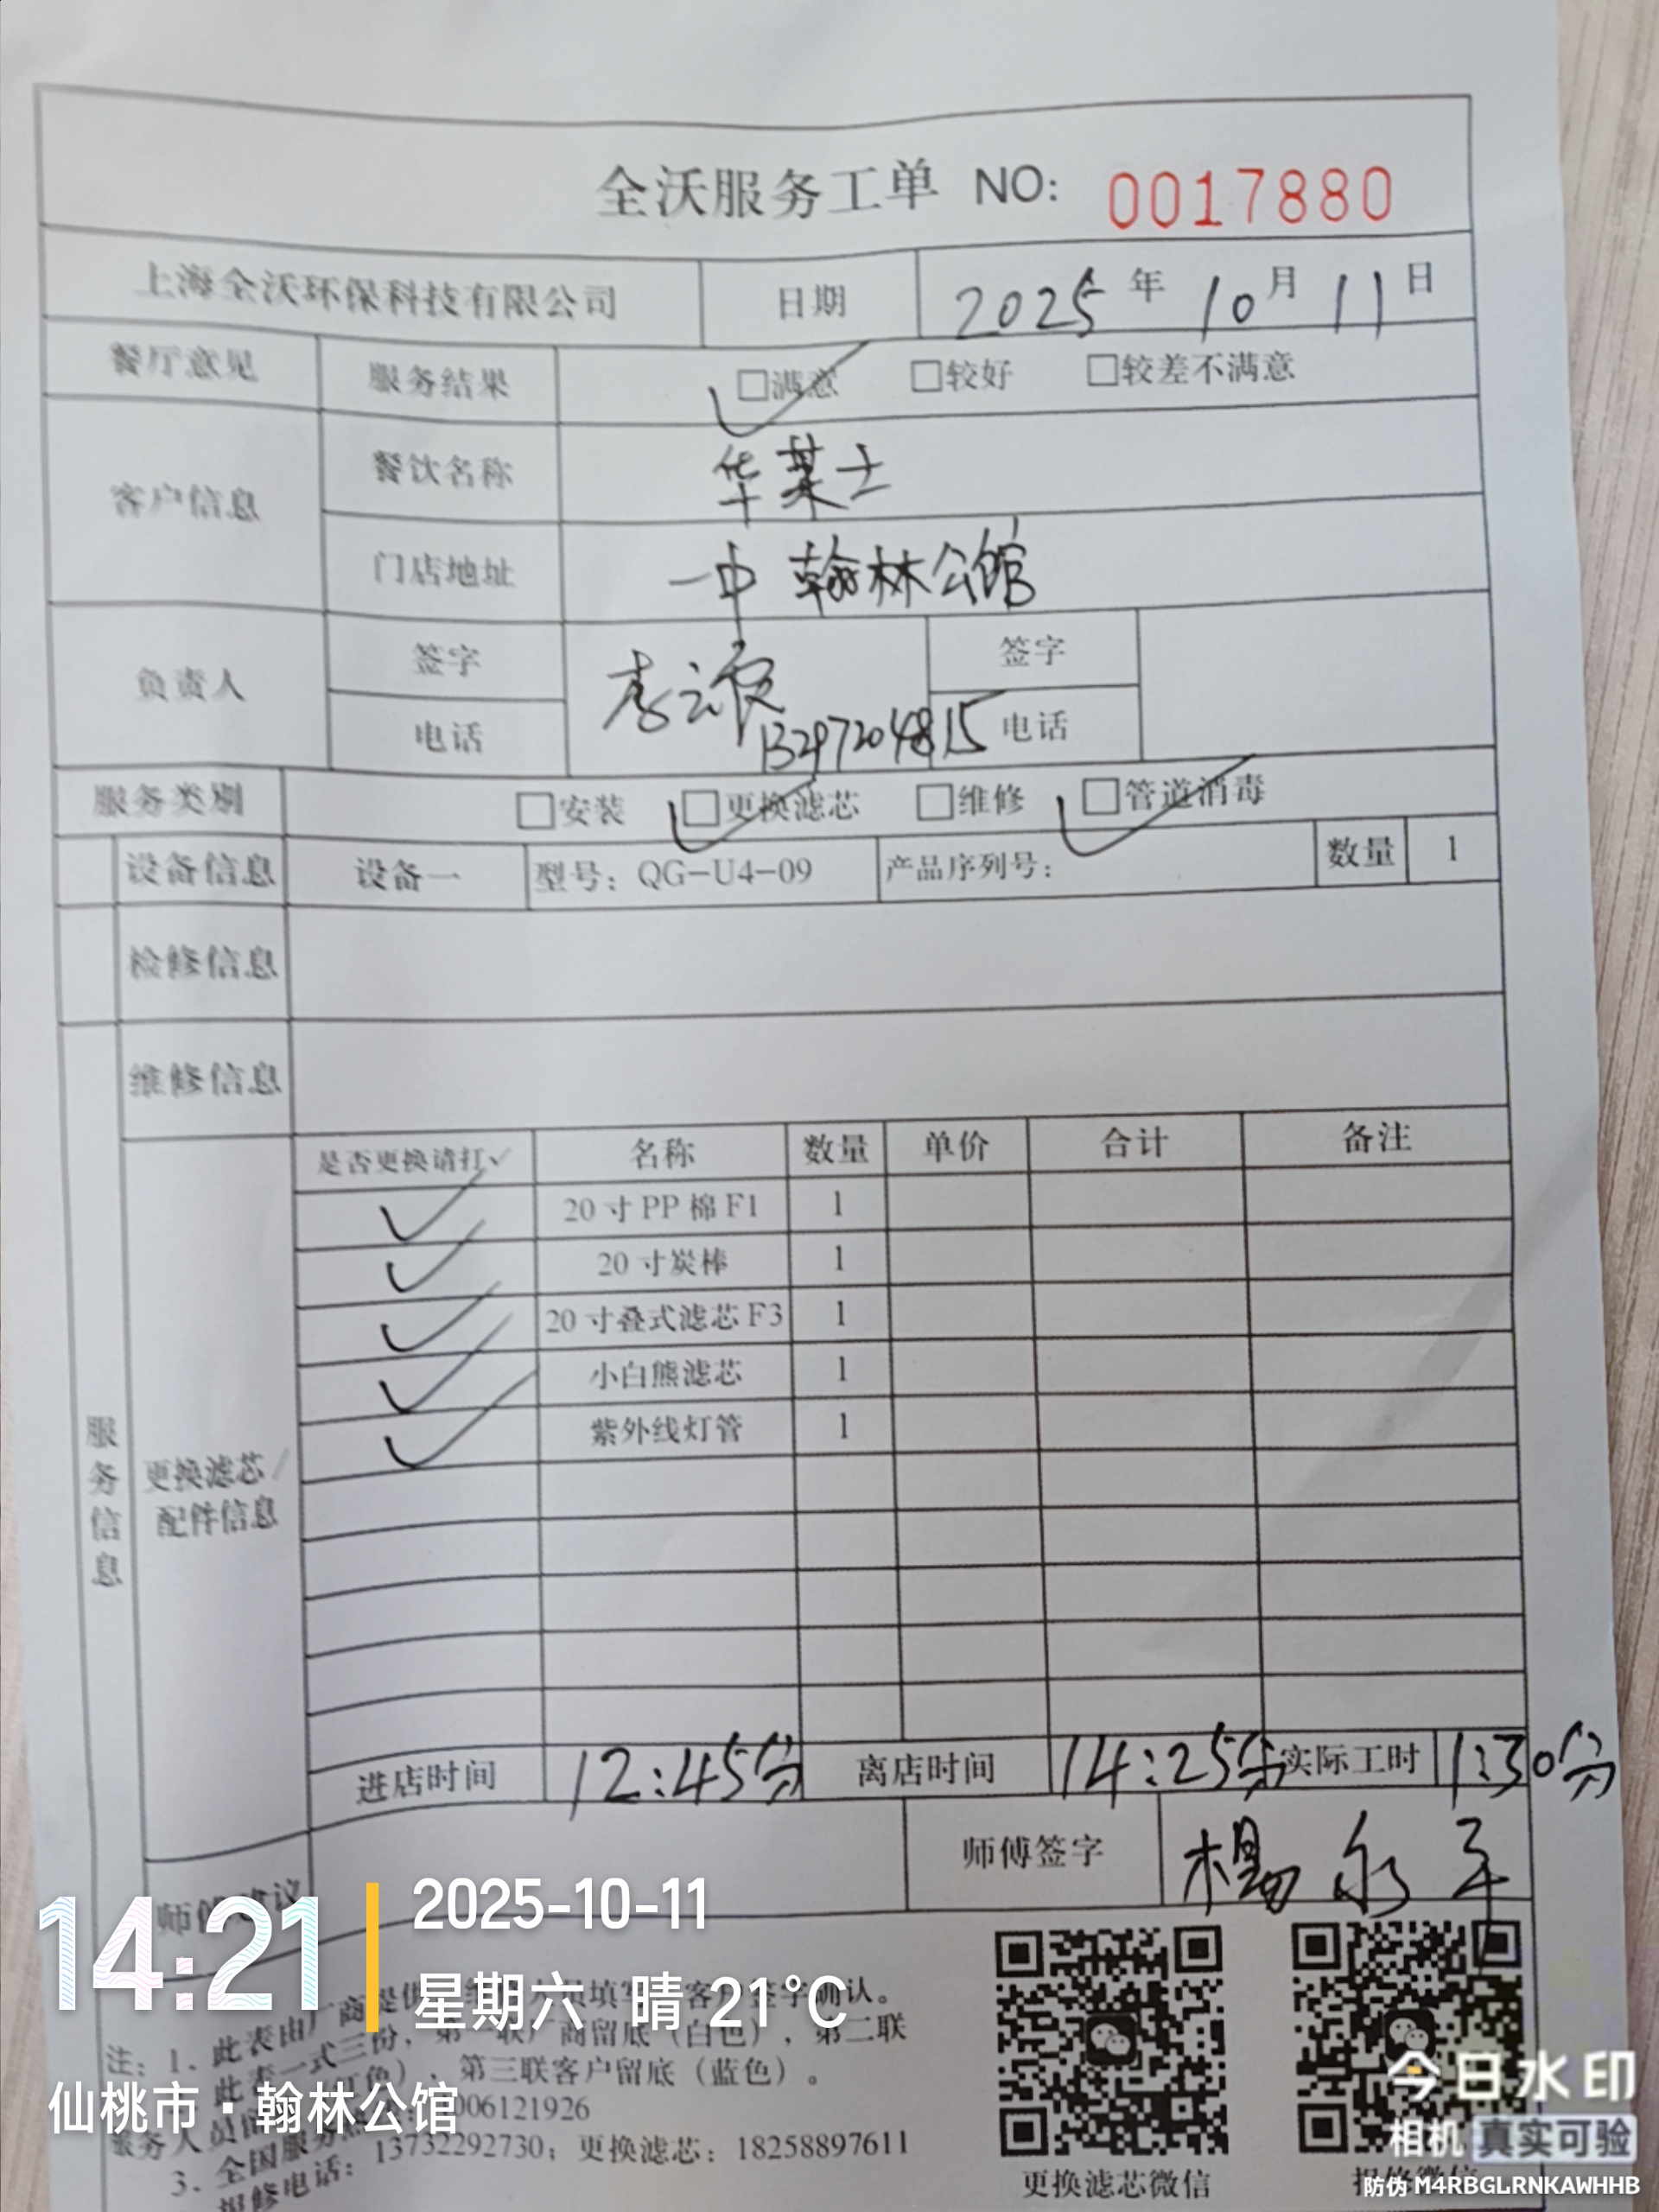 全沃服务工单 NO: 0017880
上海全沃环保科技有限公司 日期 2025 年 10 月 11 日
餐厅意见 服务结果 □满意 □较好 □较差不满意
客户信息 餐饮名称 华莱士
门店地址 一中 翰林公馆
负责人 签字 李云 签字
电话 13297204815 电话
服务类别 □安装 □更换滤芯 □维修 □管道消毒
设备信息 设备一 型号: QG-U4-09 产品序列号: 数量 1
检修信息
维修信息
是否更换请打✓ 名称 数量 单价 合计 备注
✓ 20 寸 PP 棉 F1 1
✓ 20 寸炭棒 1
✓ 20 寸叠式滤芯 F3 1
✓ 小白熊滤芯 1
✓ 紫外线灯管 1
服务信息
更换滤芯/
配件信息
进店时间 12:45分 离店时间 14:25分 实际工时 1:30分
师傅建议 师傅签字 杨永平
14:21
2025-10-11
星期六 晴 21°C
注: 1. 此表由厂商提供 填写 客户签字确认。
此表一式三份, 第一联厂商留底（白色）, 第二联
色）, 第三联客户留底（蓝色）。
仙桃市·翰林公馆
服务人员
3. 全国服务热 006121926
报修电话: 13732292730; 更换滤芯: 18258897611
更换滤芯微信
报修微信
今日水印
相机 真实可验
防伪 M4RBGLRNKAWHHB